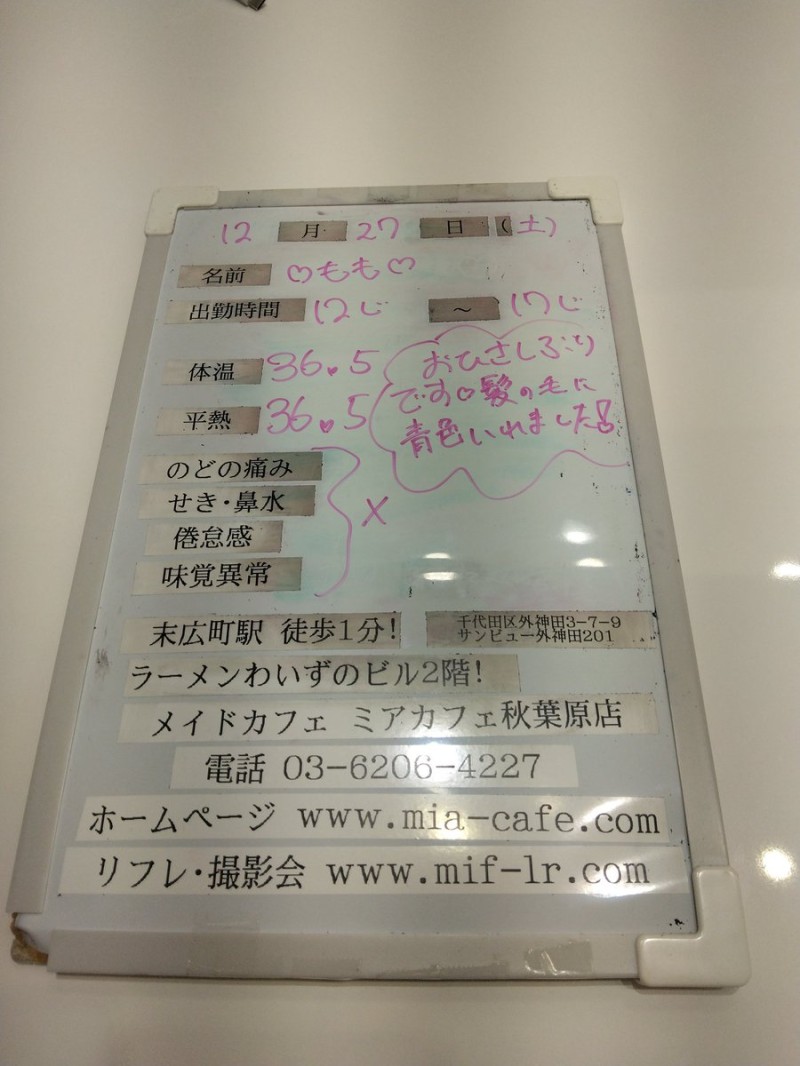 12月27日(土)
名前 ♡もも♡
出勤時間 12じ ～ 17じ
体温 36.5
平熱 36.5
おひさしぶり
です♡髪の毛に
青色いれました
のどの痛み
せき・鼻水
倦怠感
味覚異常
×
末広町駅 徒歩1分!
千代田区外神田3-7-9
サンビュー外神田201
ラーメンわいずのビル2階!
メイドカフェ ミアカフェ秋葉原店
電話 03-6206-4227
ホームページ www.mia-cafe.com
リフレ・撮影会 www.mif-lr.com